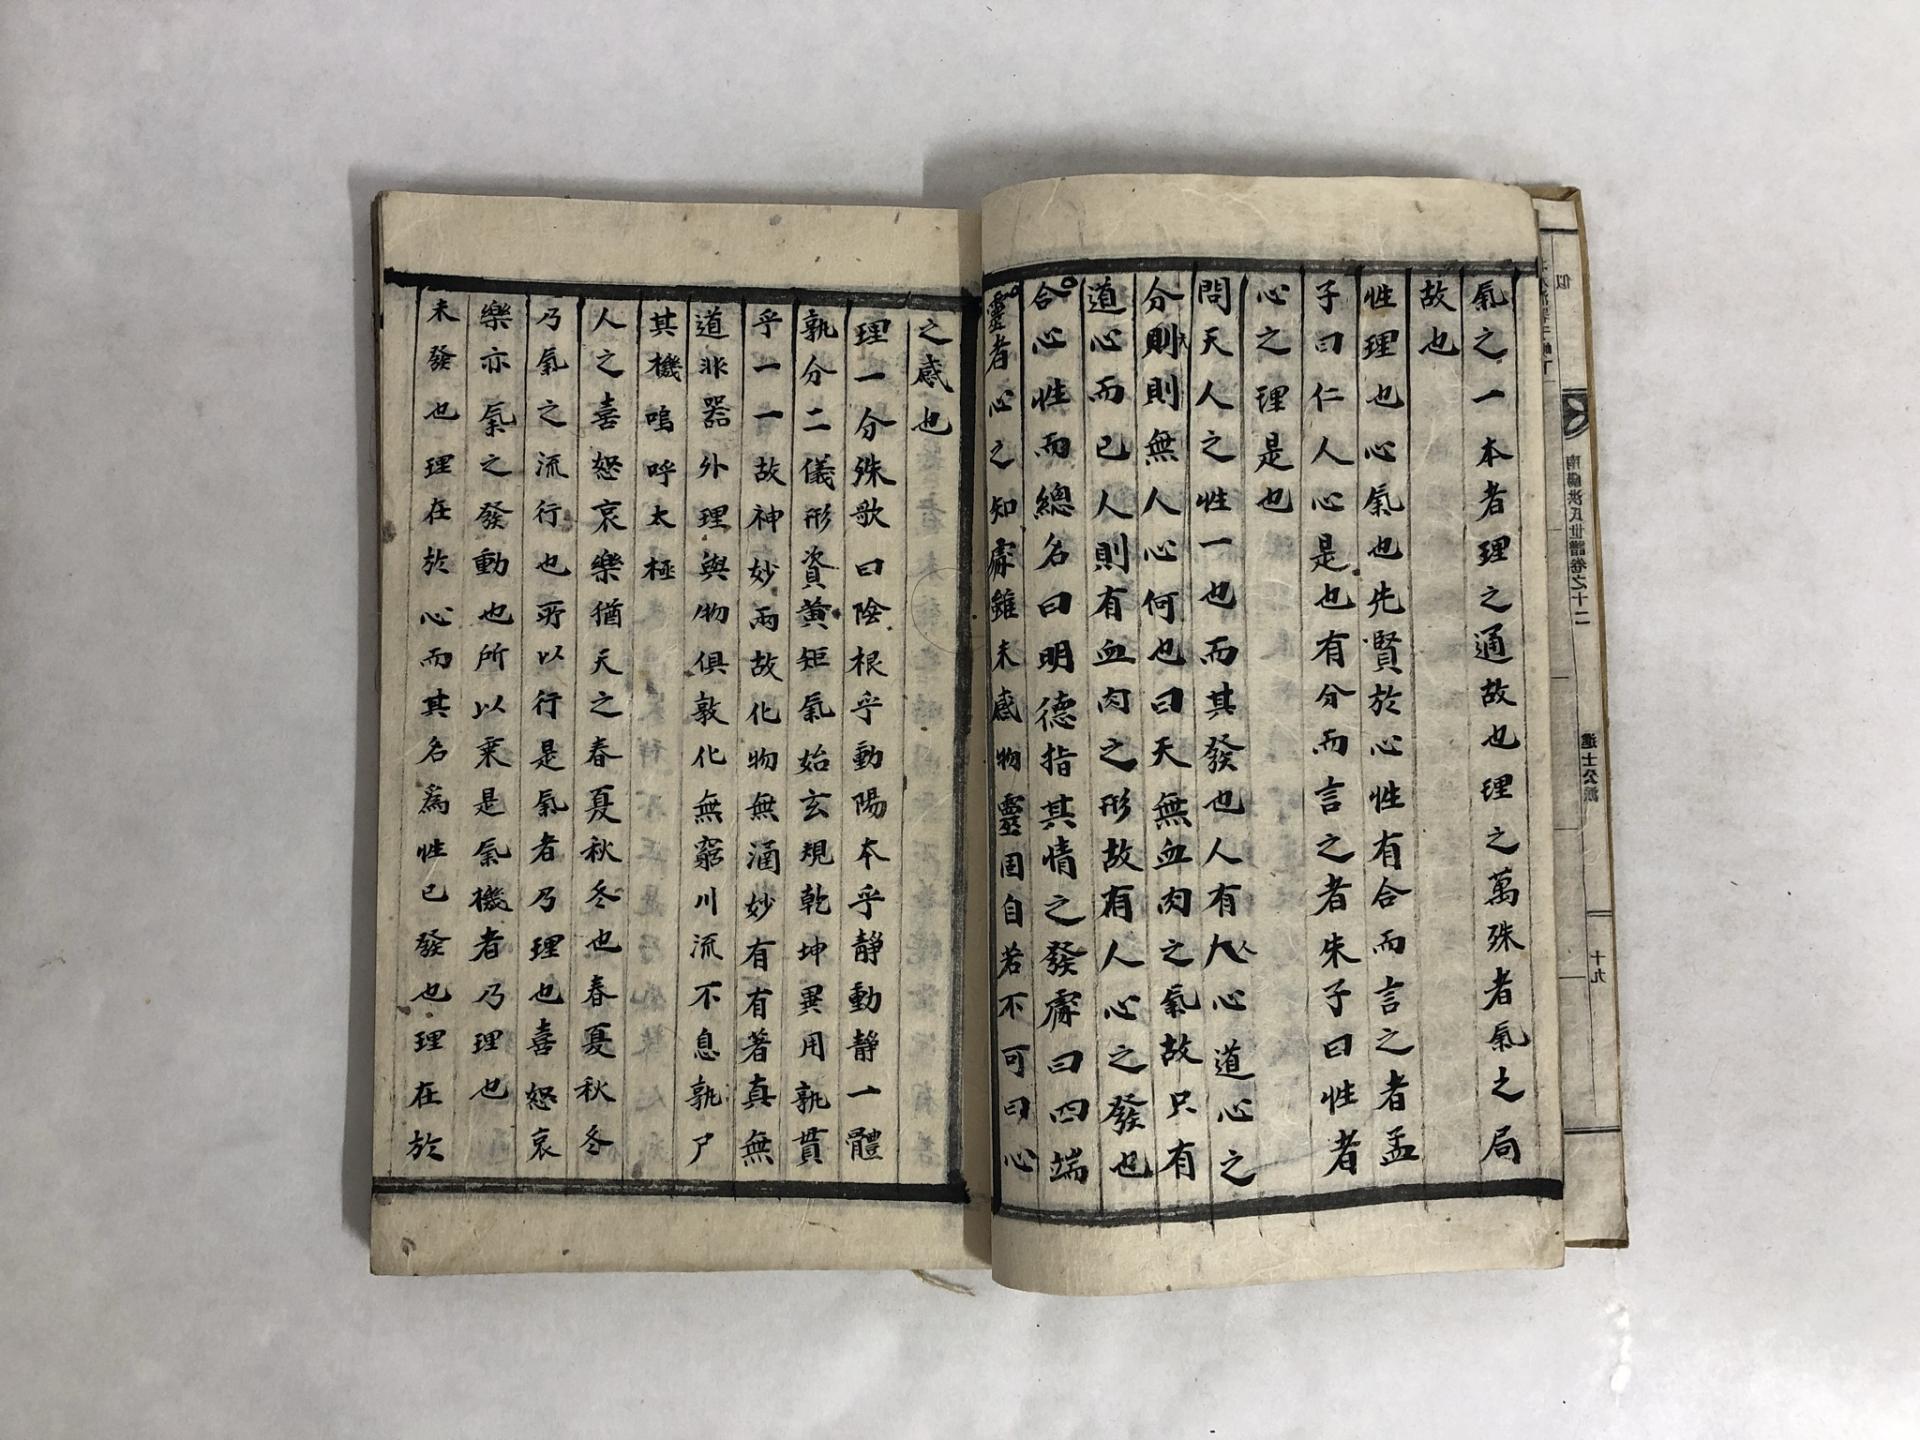 氣之一本者理之通故也理之萬殊者氣之局
故也
性理也心氣也先賢於心性有合而言之者孟
子曰仁人心是也有分而言之者朱子曰性者
心之理是也
問天人之性一也而其發也人有人心道心之
分則無人心何也曰天無血肉之氣故只有
道心而已人則有血肉之形故有人心之發也
合心性而總名曰明德指其情之發處曰四端
靈者心之知處雖未感物靈固自若不可曰心
之感也
理一分殊歌曰陰根乎動陽本乎靜動靜一體
孰分二儀形資黃矩氣始玄規乾坤異用孰貫
乎一一故神妙兩故化物無涵妙有有著真無
道非器外理與物俱敦化無窮川流不息孰尸
其機嗚呼太極
人之喜怒哀樂猶天之春夏秋冬也春夏秋冬
乃氣之流行也所以行是氣者乃理也喜怒哀
樂亦氣之發動也所以乘是氣機者乃理也
未發也理在於心而其名爲性已發也理在於
南陽洪氏世譜卷之十二
進士公派
十九